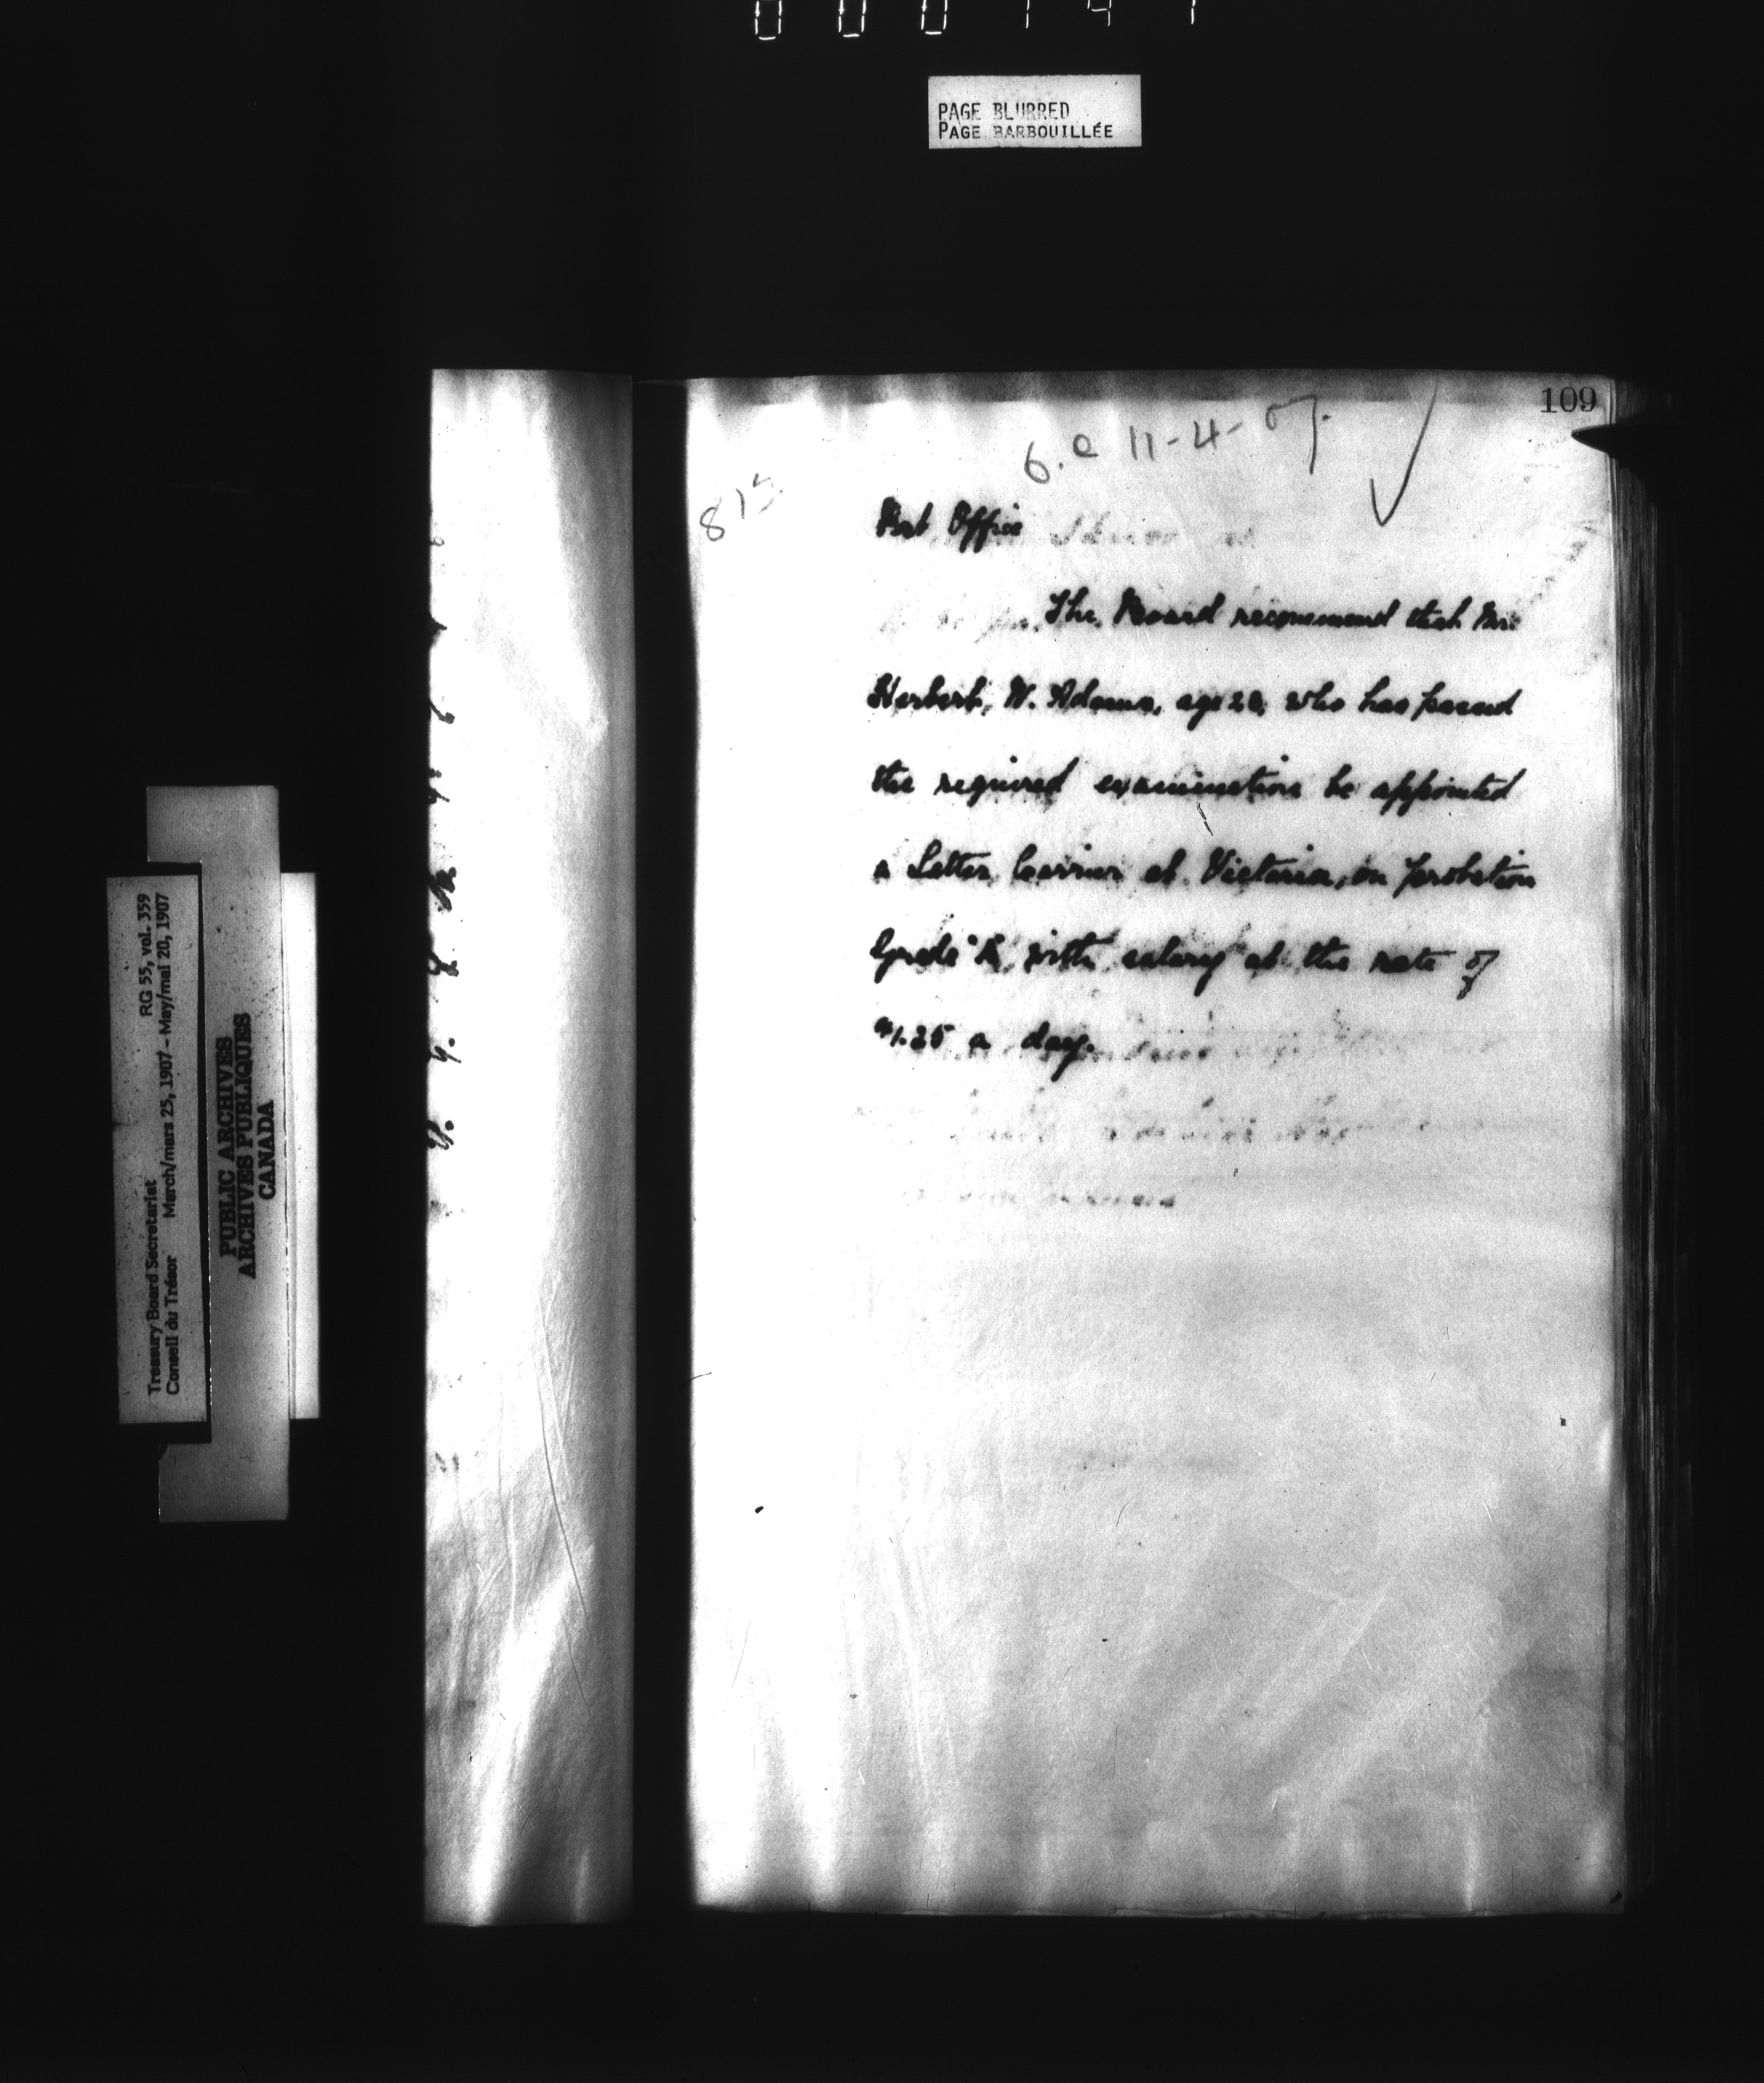 PAGE BLURRED
PAGE BARBOUILLÉE
109
11-4-07.
Post Office
The Board recommend that Mr.
Herbert W. Adams, age 20, who has passed
the required examination be appointed
a Letter Carrier at Victoria, on probation
Grade "A", with salary at the rate of
$1.25 a day.
Treasury Board Secretariat RG 55, vol. 359
Conseil du Trésor March/mars 25, 1907 - May/mai 20, 1907
PUBLIC ARCHIVES
ARCHIVES PUBLIQUES
CANADA